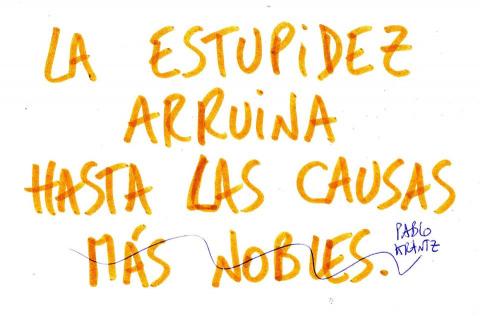 LA ESTUPiDEZ
ARRUiNA
HASTA LAS CAUSAS
MÁS NOBLES.
PABLO
ARANTZ